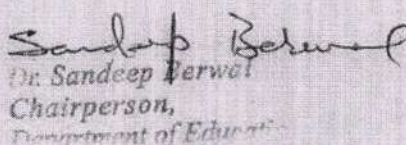 Sandeep Berwal
Dr. Sandeep Berwal
Chairperson,
Department of Educatio